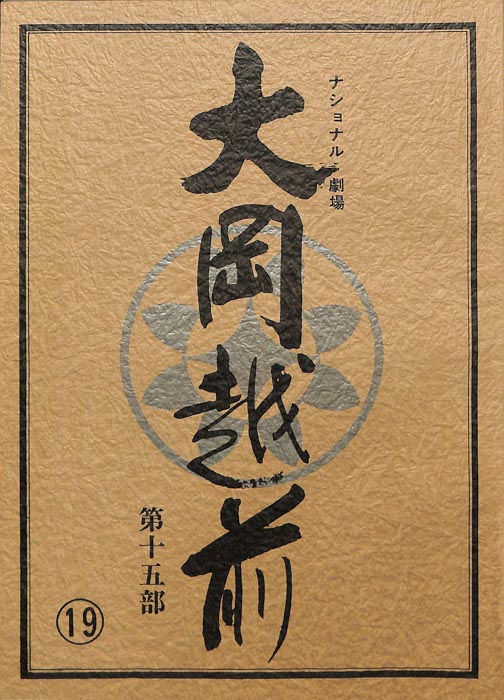 ナショナル劇場
大岡越前
第十五部
19